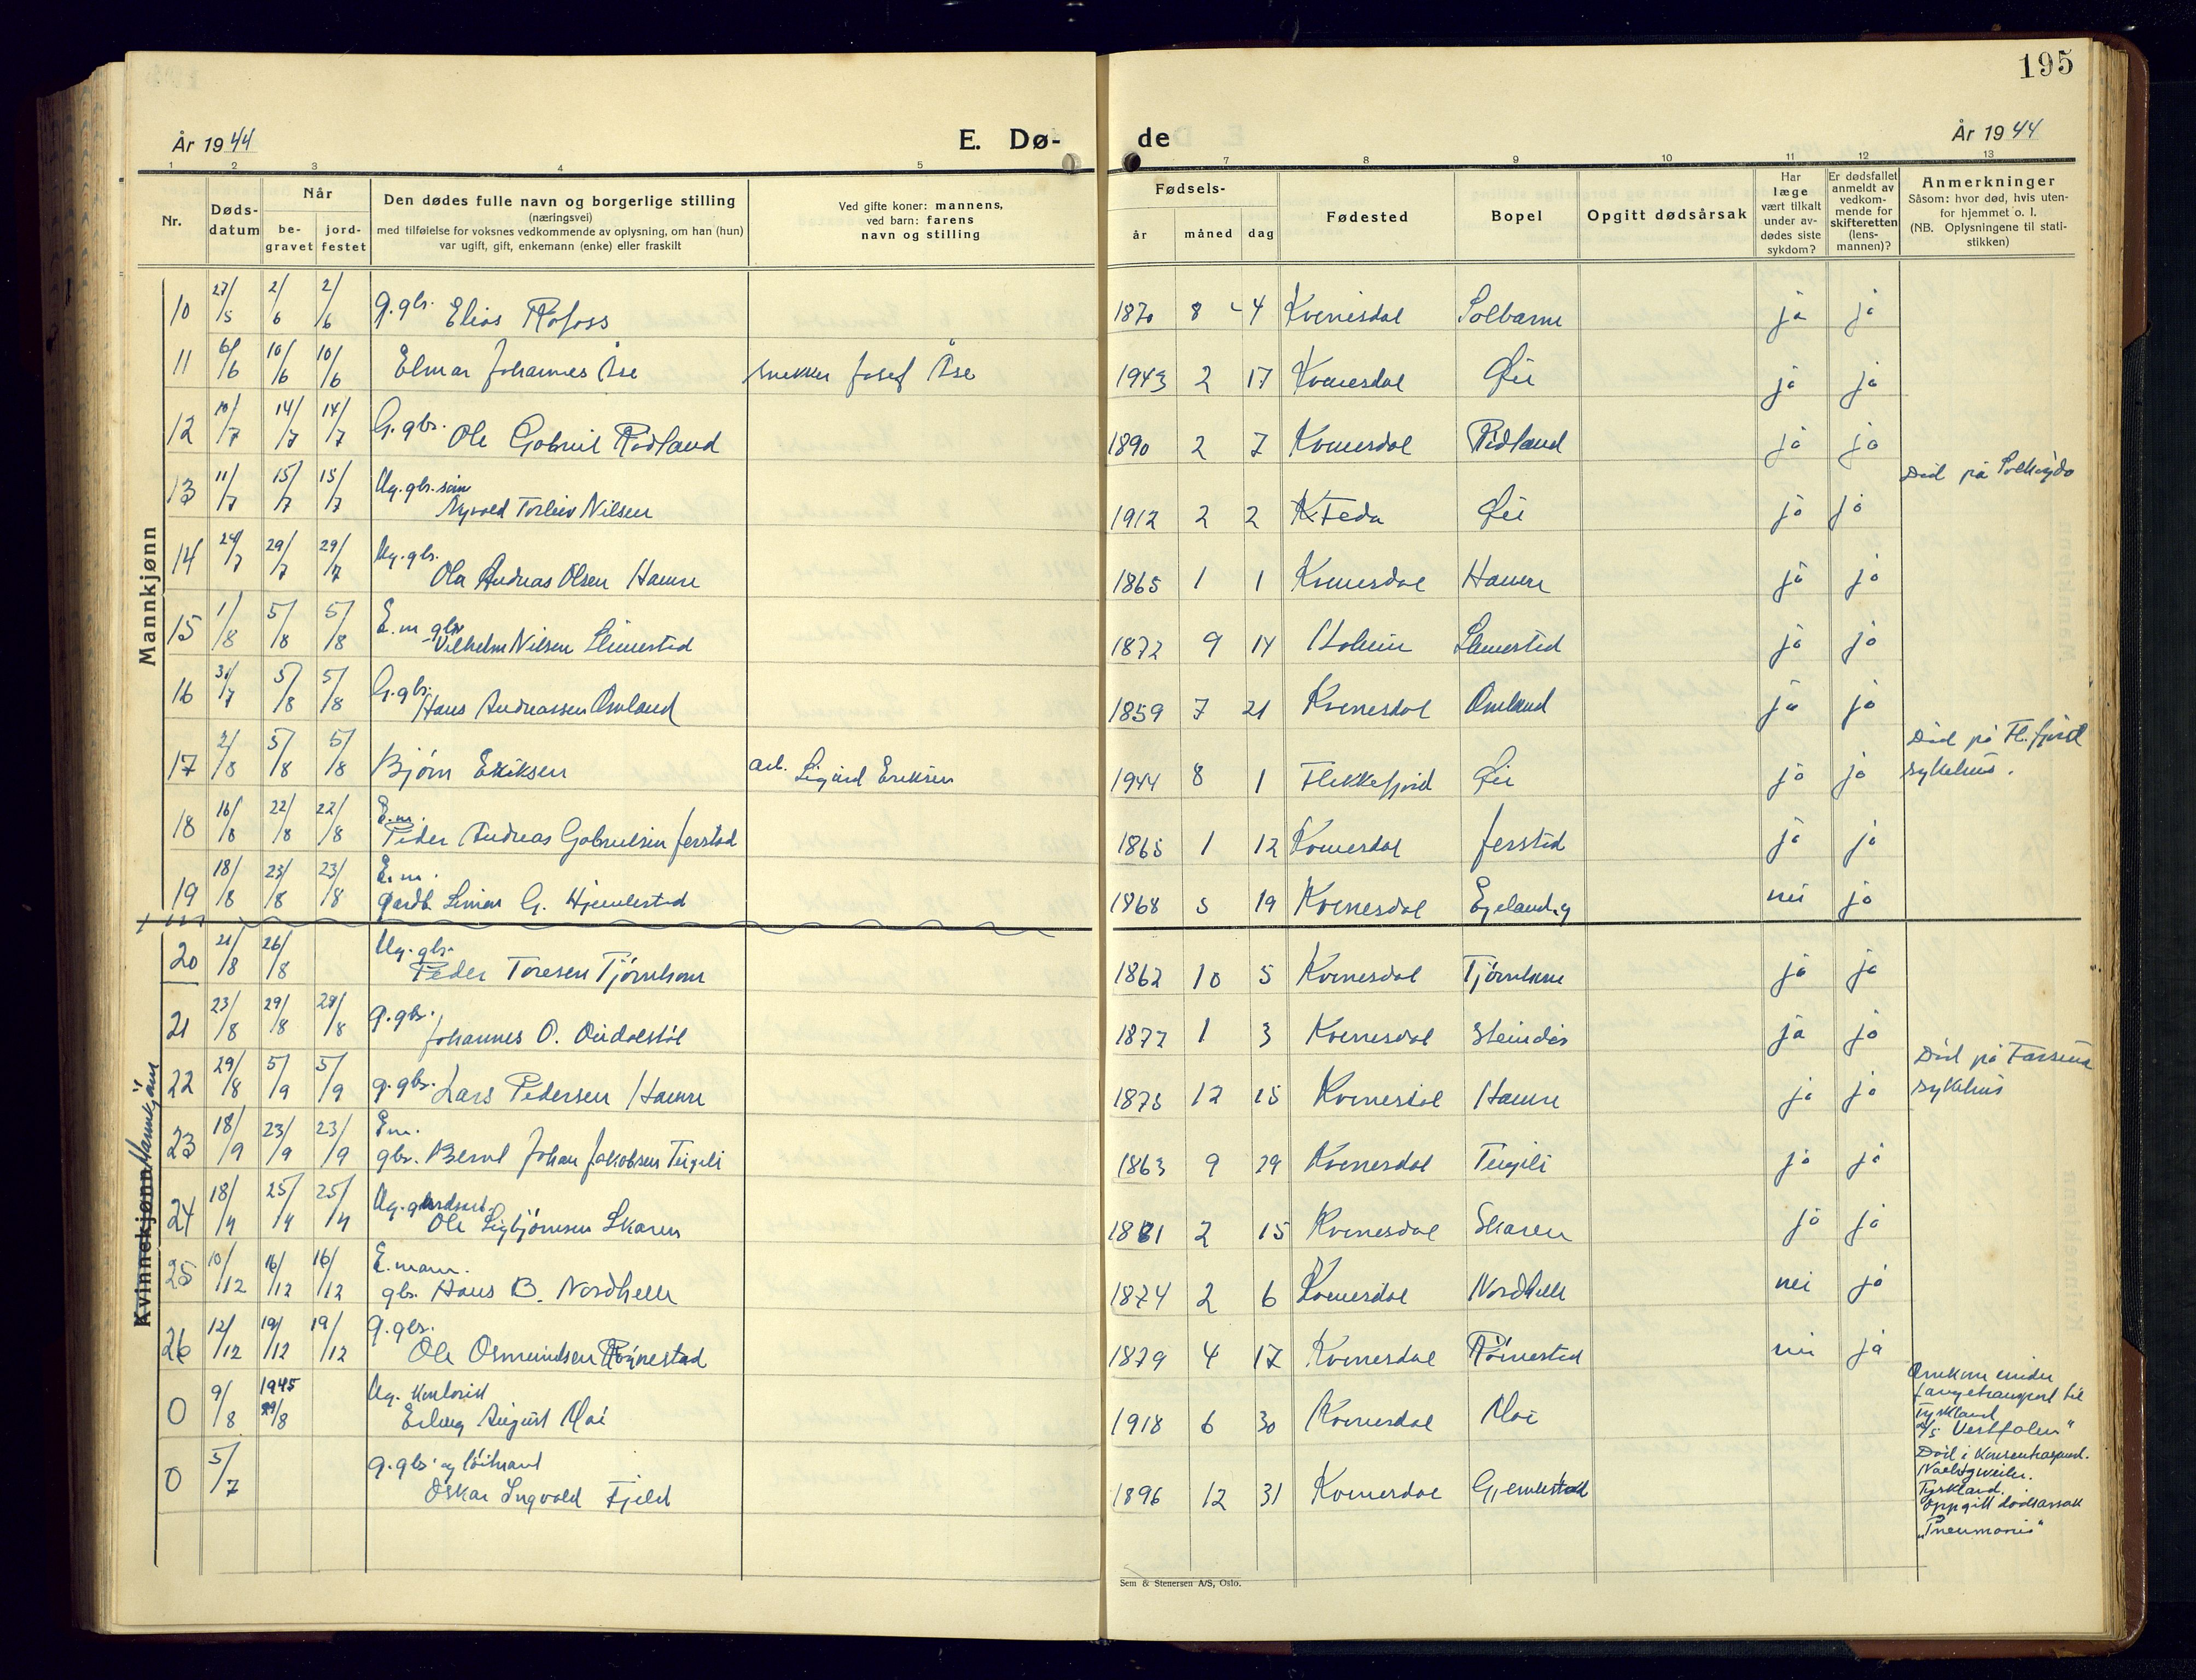 195
År 1944 E. Dø- de År 1944
1 2 3 4 5 7 8 9 10 11 12 13
Nr.
Døds-
datum
Når
be-
gravet
jord-
festet
Den dødes fulle navn og borgerlige stilling
(næringsvei)
med tilføielse for voksnes vedkommende av oplysning, om han (hun)
var ugift, gift, enkemann (enke) eller fraskilt
Ved gifte koner: mannens,
ved barn: farens
navn og stilling
Fødsels-
år måned dag
Fødested
Bopel
Opgitt dødsårsak
Har
læge
vært tilkalt
under av-
dødes siste
sykdom?
Er dødsfallet
anmeldt av
vedkom-
mende for
skifteretten
(lens-
mannen)?
Anmerkninger
Såsom: hvor død, hvis uten-
for hjemmet o. l.
(NB. Oplysningene til stati-
stikken)
Mannkjønn
10 27/5 2/6 2/6 G. gbr. Elias Rafoss 1870 8 4 Kvinesdal ja ja
11 6/6 10/6 10/6 Elmar Johannes Åse snekker Josef Åse 1943 2 17 Kvinesdal Øie ja ja
12 10/7 14/7 14/7 G. gbr. Ole Gabriel Rødland 1890 2 7 Kvinesdal Rødland ja ja
13 11/7 15/7 15/7 Ug. gbr. søn Torleiv Nilsen 1912 2 2 Feda Øie ja ja Død på
14 24/7 29/7 29/7 Ug. gbr. Ola Andreas Olsen Hamre 1865 1 1 Kvinesdal Hamre ja ja
15 1/8 5/8 5/8 E.m. gbr. Vilhelm Nilsen Slimestad 1872 9 14 Slimestad ja ja
16 31/7 5/8 5/8 G. gbr. Hans Andreassen Omland 1859 7 21 Kvinesdal Omland ja ja
17 2/8 5/8 5/8 Bjørn Eriksen arb. Sigurd Eriksen 1944 8 1 Flekkefjord Øie ja ja Død på Fl.fjord
sykehus.
18 16/8 22/8 22/8 E.m. Peder Andreas Gabrielsen Jerstad 1865 1 12 Kvinesdal Jerstad ja ja
19 18/8 23/8 23/8 E.m. gardb. Simon G. Hjemlestad 1868 5 19 Kvinesdal nei ja
Kvinnekjønn Mannkjønn
20 21/8 26/8 Ug. gbr. Peder Toresen Tjørnhom 1862 10 5 Kvinesdal Tjørnhom ja ja
21 23/8 29/8 29/8 G. gbr. Johannes O. 1877 1 3 Kvinesdal ja ja
22 29/8 5/9 5/9 g. gbr. Lars Pedersen Hamre 1875 12 15 Kvinesdal Hamre ja ja Død på Farsund
sykehus
23 18/9 23/9 23/9 E.m. gbr. Bernt Johan Jakobsen Teigeli 1863 9 29 Kvinesdal Teigeli ja ja
24 18/11 25/11 25/11 Ug. Ole Sigbjørnsen Skaren 1881 2 15 Kvinesdal Skaren ja ja
25 10/12 16/12 16/12 E.mann. gbr. Hans B. Nordhelle 1874 2 6 Kvinesdal Nordhelle nei ja
26 12/12 19/12 19/12 G. gbr. Ole Osmundsen Røynestad 1879 4 17 Kvinesdal Røinestad nei ja
0 9/8 1945 29/8 Ug. kontorist Erling August Moi 1918 6 30 Kvinesdal Moi Omkom under
fangetransport til
Tyskland
D/S "Vestfalen"
0 5/7 g. gbr. og løitnant Oskar Ingvald Fjeld 1896 12 31 Kvinesdal Gjemlestad Død i
Tyskland.
Oppgitt dødsårsak
"Pneumoni"
Sem & Stenersen A/S, Oslo.